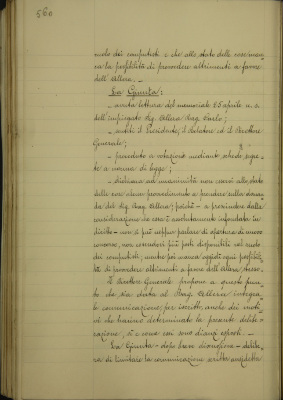 560
ruolo dei computisti e che allo stato delle cose man-
ca la possibilità di provvedere altrimenti a favore
dell'Allera. _
La Giunta:
_ avuta lettura del memoriale 25 aprile u. s.
dell'impiegato Sig. Allera Rag. Carlo;
_ uditi il Presidente, il Relatore ed il Direttore
Generale;
_ proceduto a votazione mediante schede segre-
te a norma di legge;
_ dichiara ad unanimità non esservi allo stato
delle cose alcun provvedimento a prendere sulla doman-
da del Sig. Rag. Allera, poichè _ a prescindere dalla
considerazione che essa è assolutamente infondata in
diritto _ non si può neppure parlare di apertura di nuovo
concorso, non essendovi più posti disponibili nel ruolo
dei computisti; mentre poi manca oggi ogni possibili-
tà di provvedere altrimenti a favore dell'Allera stesso.
Il Direttore Generale propone a questo punto
che sia data al Rag. Allera integrale
comunicazione per iscritto, anche dei moti-
vi che hanno determinato la presente delibe-
razione, sì e come essi sono dianzi esposti. _
La Giunta _ dopo breve discussione _ delibe-
ra di limitare la comunicazione scritta anzidetta